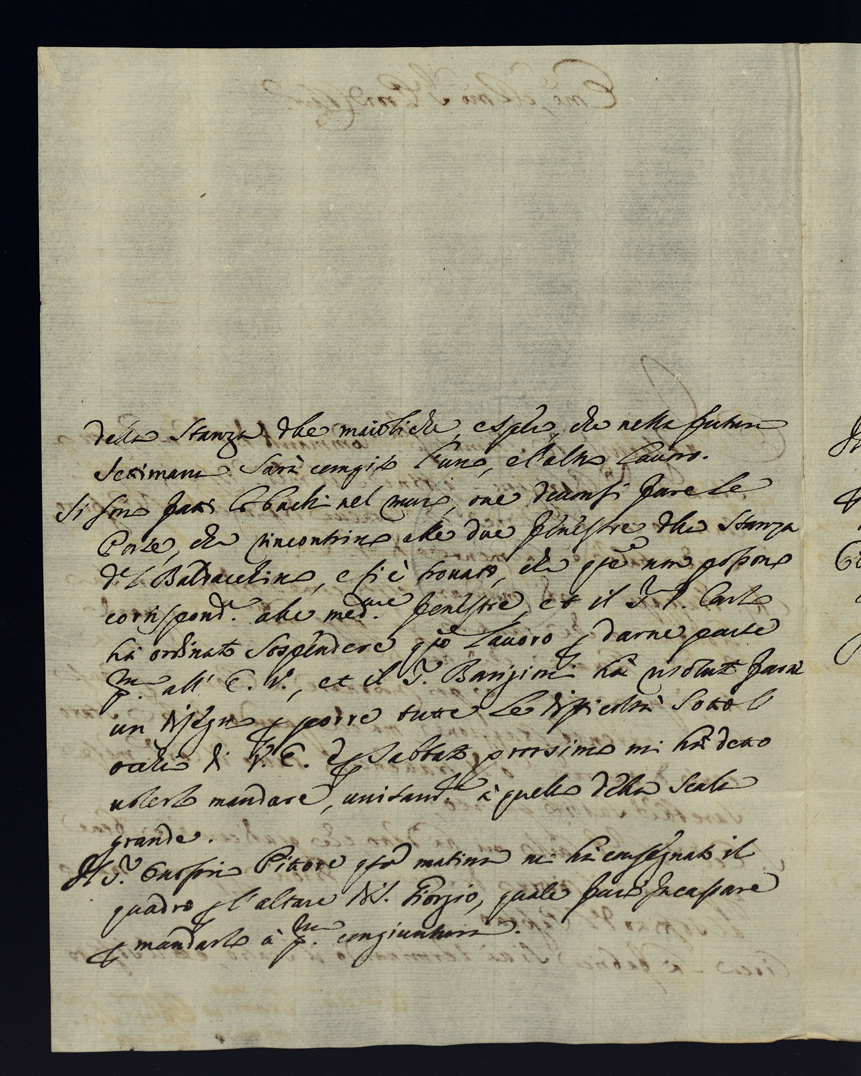 della Stanza dlle maioliche, e spero, che nella futura
Settimana sarà compito l'uno, e l'altro lavoro.
Si son fatti li buchi nel muro, ove devonsi fare le
Porte, che rincontrino alle due fenestre dlla Stanza
d'l Baldacchino, e si è trovato, che qsto non possono
corrispondre. alle medme. fenestre, et il Sr. Carlo
hà ordinato sospendere qsto lavoro p darne parte
pa. all' E. V., et il Sr. Barigioni hà risoluto farne
un disegno p porre tutte le difficoltà sotto l'
occhio di V. E. e p Sabbato prossimo mi hà detto
volerlo mandare, unitamte à quello della Scala
grande.
Il Sr. Pittore qsta matina mi hà consegnato il
quadro p l'altare di S. Giorgio, quale farò incassare
p mandarlo à pa. congiuntura.